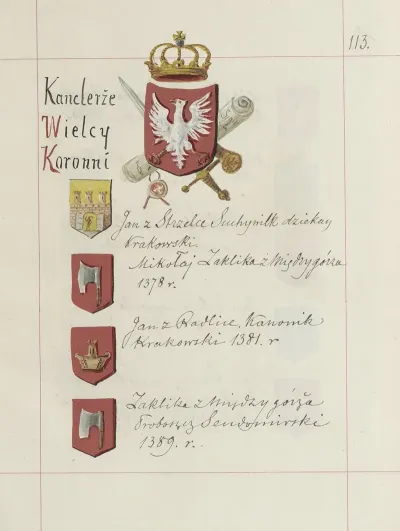 113.
Kanclerże
Wielcy
Koronni
Jan z Strzelce Suchywilk dziekan
Krakowski.
Mikołaj Zaklika z Międzygórza
1378 r.
Jan z Radlic, Kanonik
Krakowski 1381. r
Zaklika z Międzygórża
Proboszcz Sendomirski
1389. r.